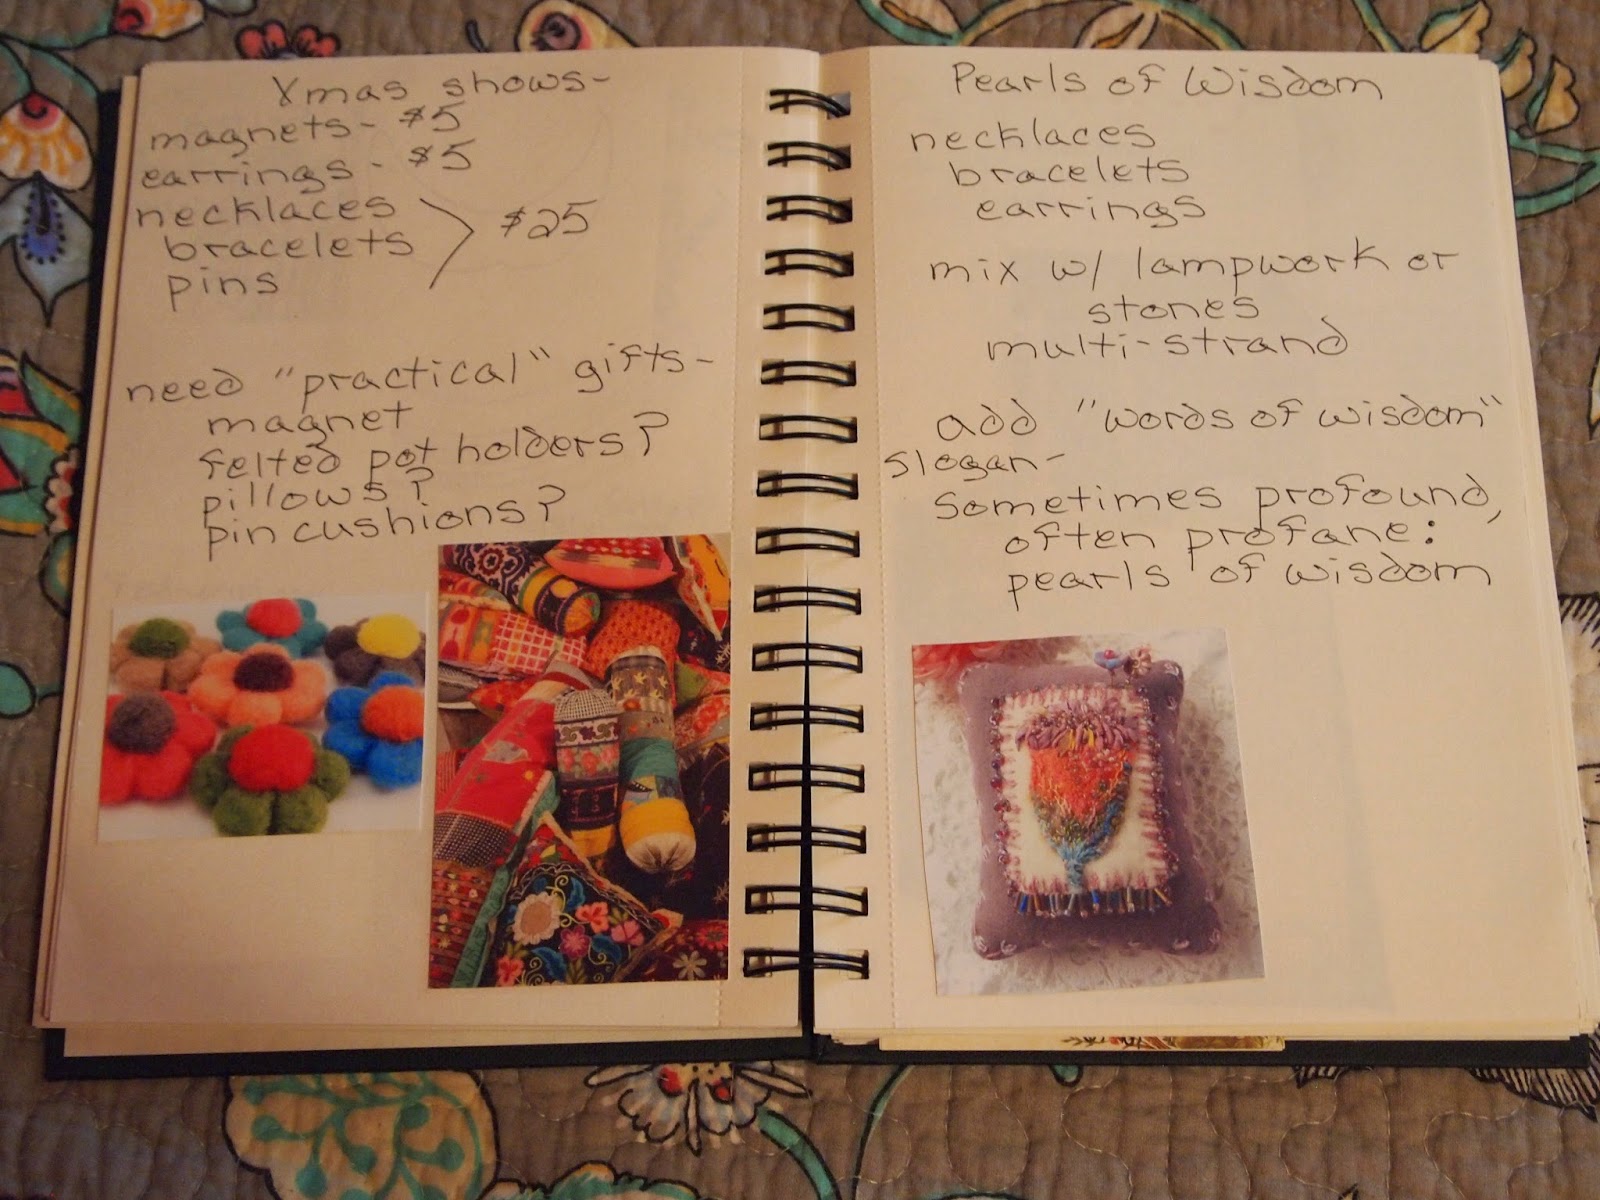 Xmas shows-
magnets - $5
earrings - $5
necklaces
bracelets
pins
$25
need "practical" gifts-
magnet
felted pot holders?
pillows?
pin cushions?
Pearls of Wisdom
necklaces
bracelets
earrings
mix w/ lampwork or
stones
multi-strand
add "words of wisdom"
slogan-
sometimes profound,
often profane:
pearls of wisdom